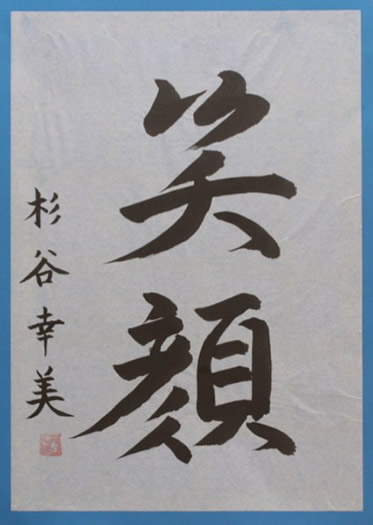 笑顔
杉谷幸美